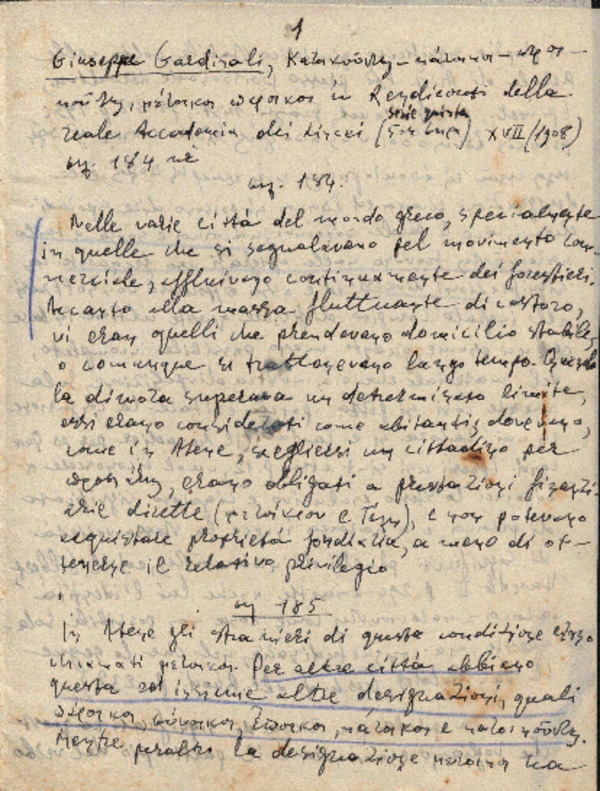 1
Giuseppe Cardinali,
in Rendiconti della
reale Accademia dei Lincei (serie quinta XVII (1908)
pag. 184
pag. 184.
Nelle varie città del mondo greco, specialmente
in quelle che si segnalavano pel movimento com-
merciale, affluivano continuamente dei forestieri.
Accanto alla massa fluttuante di costoro,
vi eran quelli che prendevano domicilio stabile,
o comunque si trattenevano lungo tempo. Quando
la dimora superava un determinato limite,
essi erano considerati come abitanti; dovevano,
come in Atene, scegliersi un cittadino per
erano obbligati a prestazioni finanzi-
arie dirette (μετοίκιον e e non potevano
acquistare proprietà fondiaria, a meno di ot-
tenerne il relativo privilegio
185
In Atene gli stranieri di questa condizione erano
chiamati μέτοικοι. Per altre città abbiamo
questa ed insieme altre designazioni, quali
πάροικοι, σύνοικοι, ἔποικοι, κάτοικοι e
Mentre peraltro la designazione